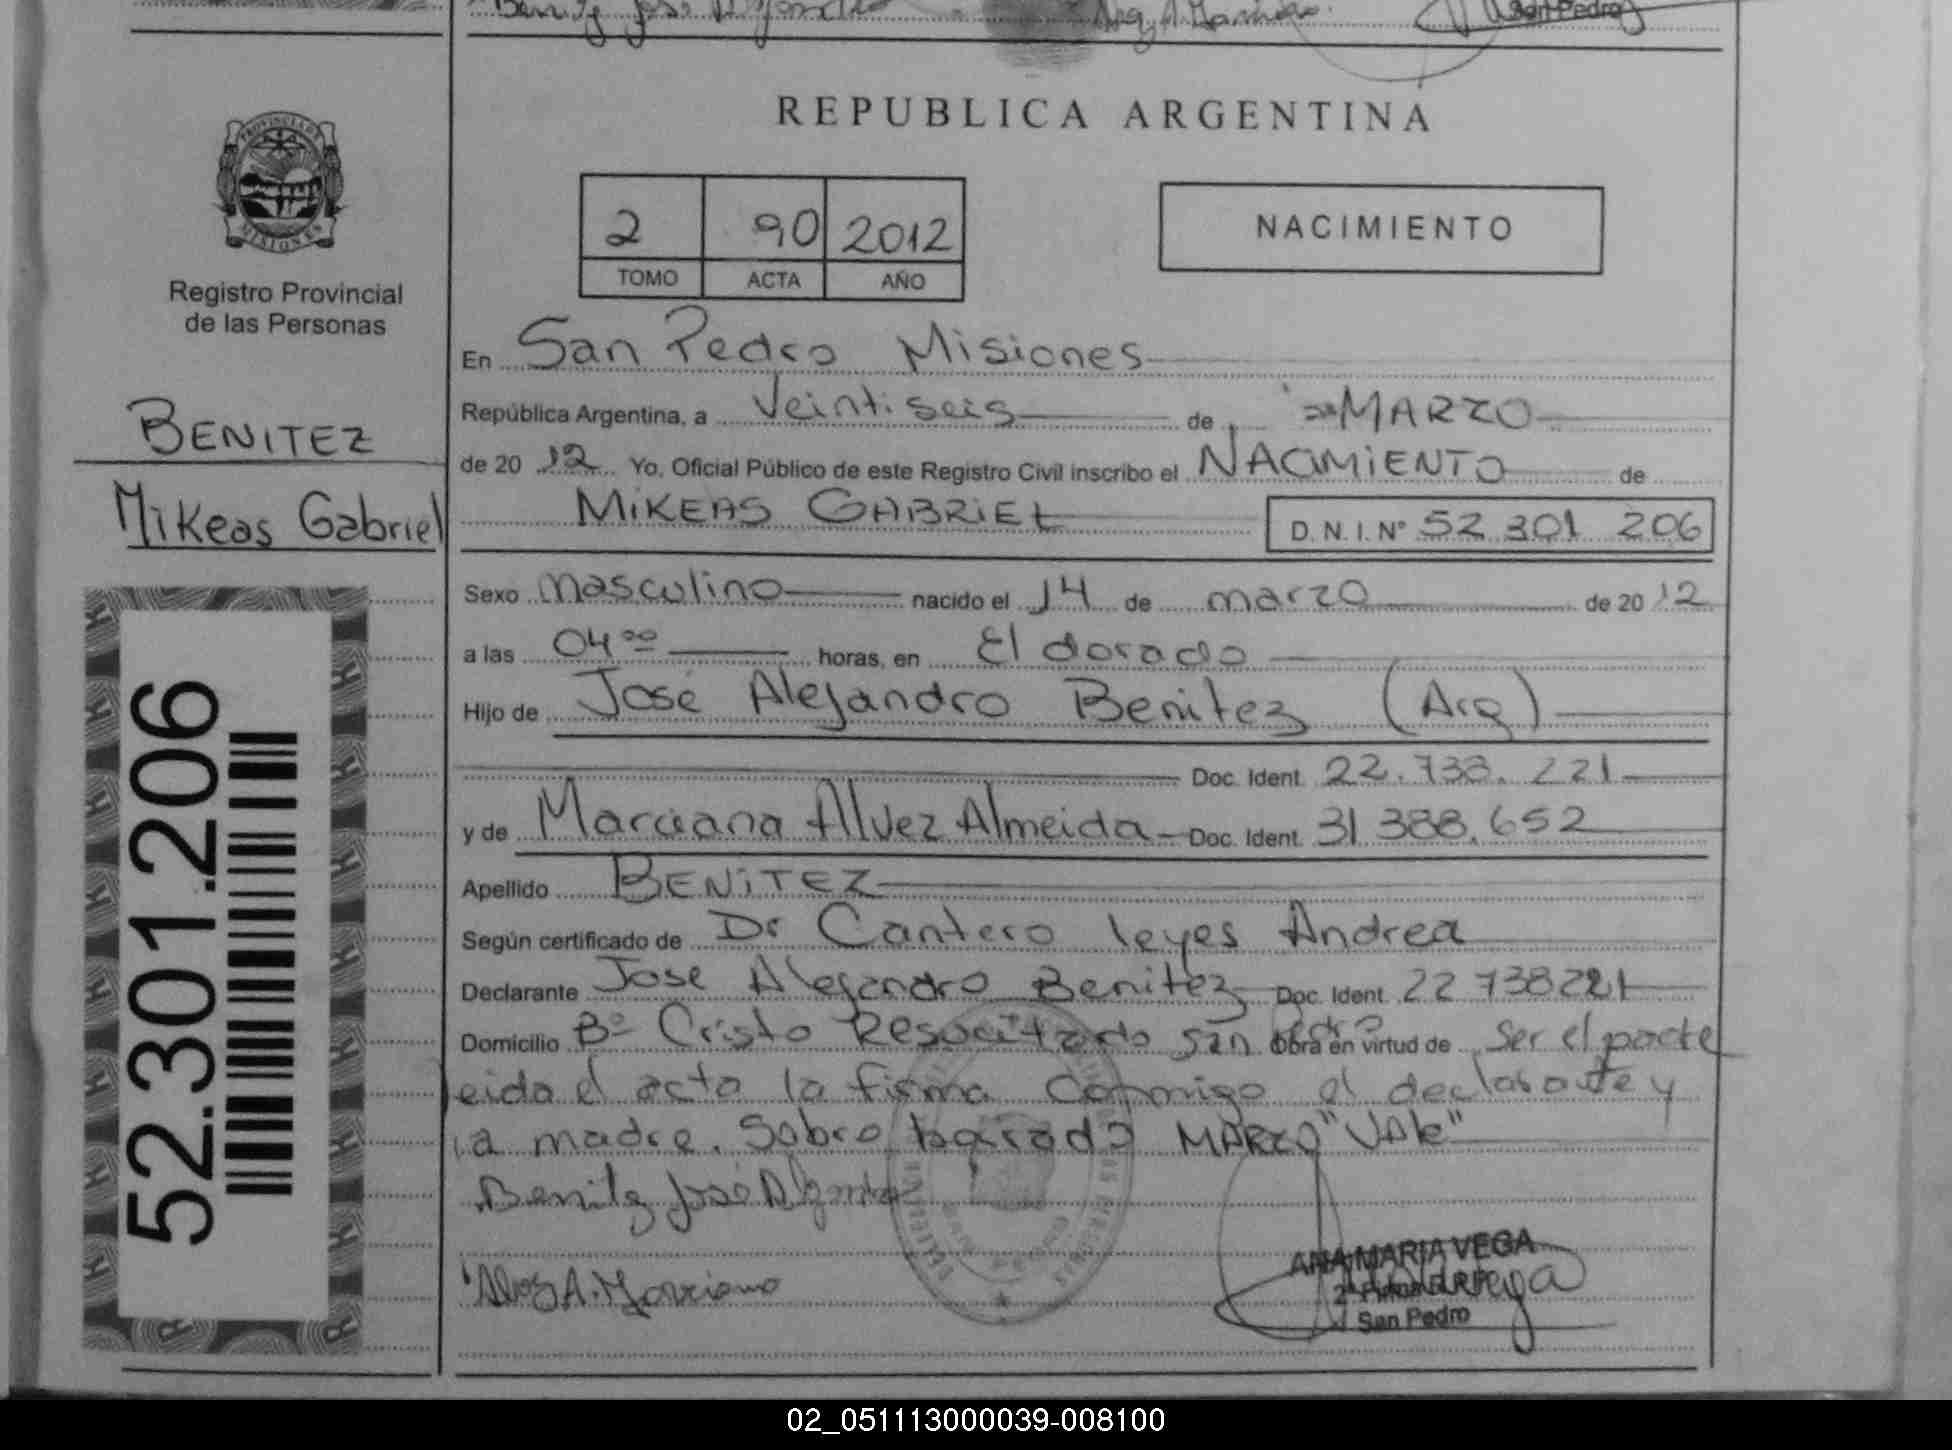 Benitez José Alejandro
San Pedro
REPUBLICA ARGENTINA
PROVINCIA DE
MISIONES
Registro Provincial
de las Personas
BENITEZ
Mikeas Gabriel
52.301.206
2 90 2012
TOMO ACTA AÑO
NACIMIENTO
En San Pedro Misiones
República Argentina, a Veintiseis de MARZO
de 2012 Yo, Oficial Público de este Registro Civil inscribo el NACIMIENTO de
MIKEAS GABRIEL D.N.I.Nº 52.301 206
Sexo masculino nacido el 14 de marzo de 2012
a las 04⁰⁰ horas, en El dorado
Hijo de José Alejandro Benitez (Arg)
Doc. Ident. 22.738.221
y de Marciana Alvez Almeida Doc. Ident. 31.388.652
Apellido BENITEZ
Según certificado de Dr Cantero leyes Andrea
Declarante Jose Alejandro Benitez Doc. Ident. 22 738221
Domicilio Bº Cristo Resucitado San Pedro Obra en virtud de Ser el padre
leida el acta la firma conmigo el declarante y
la madre. Sobre MARZO "Vale"
Benitez José Alejandro
Alvez A. Marciana
ANA MARIA VEGA
San Pedro
02_051113000039-008100